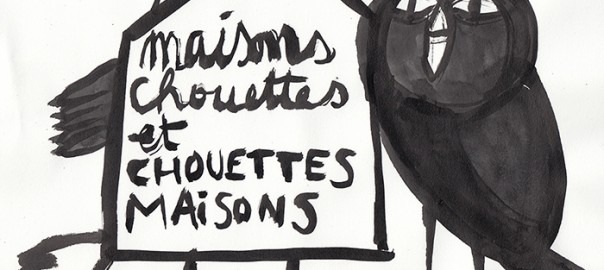 maisons
chouettes
et
CHOUETTES
MAiSONS